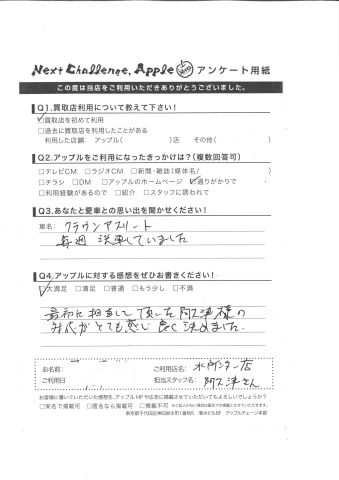 Next Challenge, Apple アンケート用紙
この度は当店をご利用いただきありがとうございました。
Q1.買取店利用について教えて下さい!
☑買取店を初めて利用
□過去に買取店を利用したことがある
利用した店舗: アップル( )店 その他( )
Q2.アップルをご利用になったきっかけは?(複数回答可)
□テレビCM □ラジオCM □新聞・雑誌(媒体名/ )
□チラシ □DM □アップルのホームページ ☑通りがかりで
□利用経験があるので □紹介 □スタッフに誘われて
Q3.あなたと愛車との思い出を聞かせください!
車名: クラウンアスリート
毎週 洗車していました
Q4.アップルに対する感想をぜひお書きください!
☑大満足 □満足 □普通 □もう少し □不満
最初に担当して頂いた阿久津様の
対応がとても感じ良く決めました。
お名前: ご利用店名: 水戸インター店
ご利用日 担当スタッフ名: 阿久津さん
お客様に書いていただいた感想を、アップルHPや広告に掲載させていただいてもよろしいでしょうか?
□実名で掲載可 □匿名なら掲載可 □掲載不可
東京都千代田区神田鍛冶町 清水ビル6F アップルチェーン本部